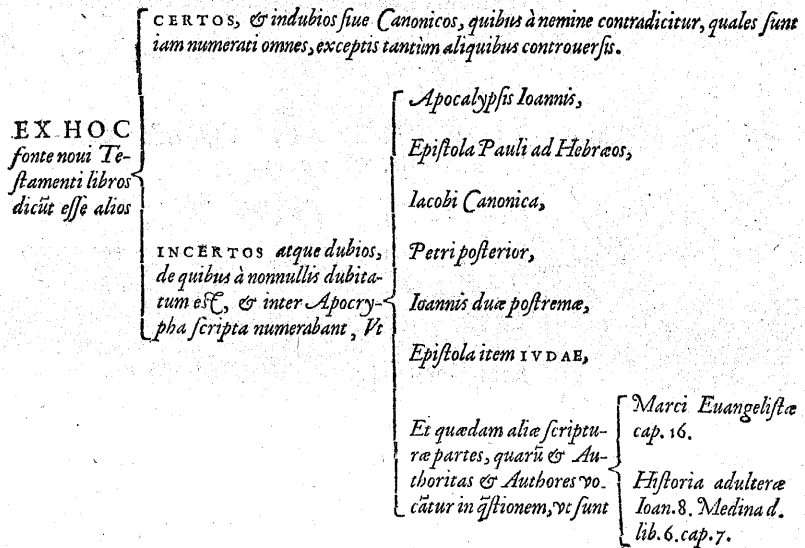 CERTOS, & indubios ſiue Canonicos, quibus à nemine contradicitur, quales ſunt
iam numerati omnes, exceptis tantùm aliquibus controuerſis.
EX HOC
fonte noui Te-
ſtamenti libros
dicūt eſſe alios
INCERTOS atque dubios,
de quibus à nonnullis dubita-
tum eſt, & inter Apocry-
pha ſcripta numerabant, Vt
Apocalypſis Ioannis,
Epiſtola Pauli ad Hebræos,
Iacobi Canonica,
Petri poſterior,
Ioannis duæ poſtremæ,
Epiſtola item IVDAE,
Et quædam aliæ ſcriptu-
ræ partes, quarū & Au-
thoritas & Authores vo-
cātur in q̄ſtionem, vt ſunt
Marci Euangeliſtæ
cap. 16.
Hiſtoria adulteræ
Ioan. 8. Medina d.
lib. 6. cap. 7.